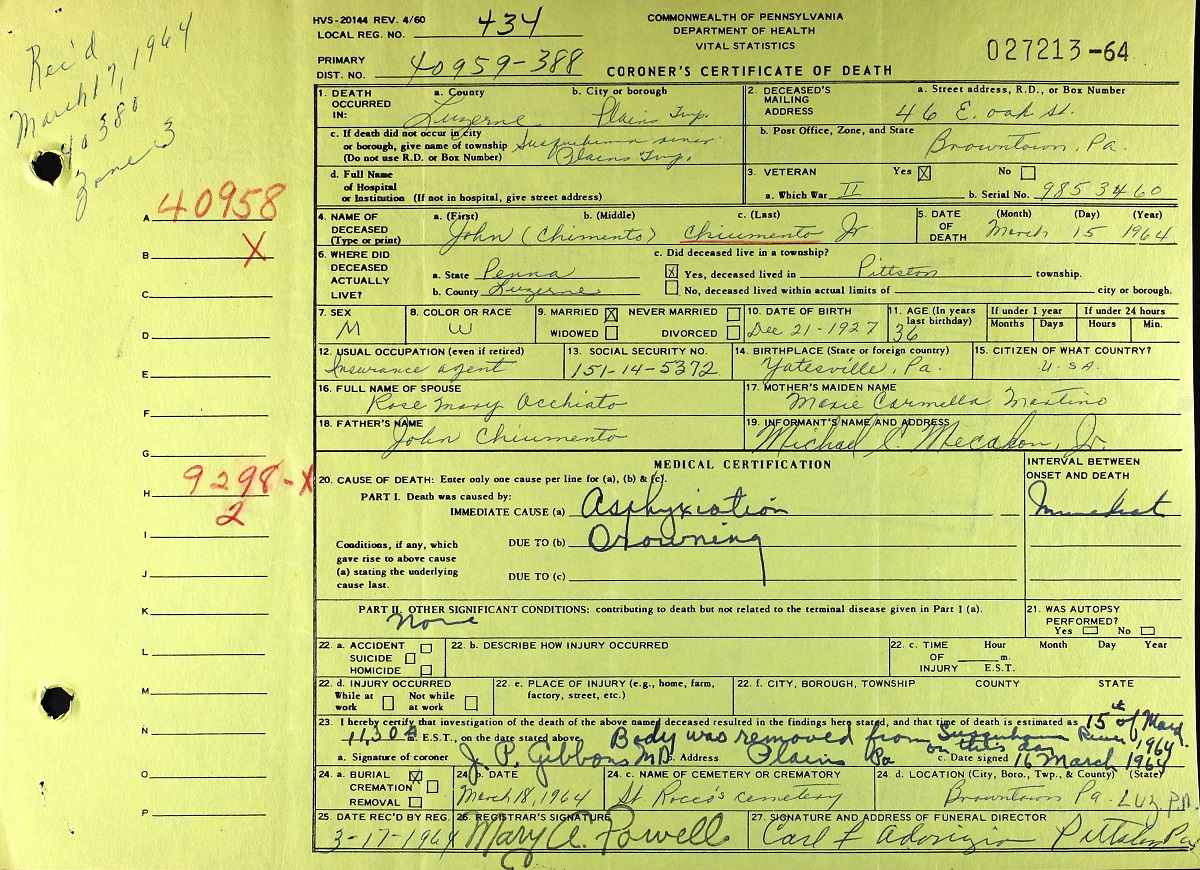 Rec'd
March 17, 1964
40380
Zone 3
HVS-20144 REV. 4/60
LOCAL REG. NO. 434
PRIMARY
DIST. NO. 40959-388
COMMONWEALTH OF PENNSYLVANIA
DEPARTMENT OF HEALTH
VITAL STATISTICS
CORONER'S CERTIFICATE OF DEATH
027213-64
A 40958
B X
C
D
E
F
G
H 9298-X
2
I
J
K
L
M
N
O
P
1. DEATH OCCURRED IN:
a. County Luzerne
b. City or borough Plains Twp.
c. If death did not occur in city or borough, give name of township (Do not use R.D. or Box Number)
Plains Twp.
d. Full Name of Hospital or Institution (If not in hospital, give street address)
2. DECEASED'S MAILING ADDRESS
a. Street address, R.D., or Box Number
46 E. oak St.
b. Post Office, Zone, and State
Browntown, Pa.
3. VETERAN Yes X No
a. Which War II b. Serial No. 9853460
4. NAME OF DECEASED (Type or print)
a. (First) b. (Middle) c. (Last)
John (Chimento) Chiumento Jr
5. DATE OF DEATH (Month) (Day) (Year)
March 15 1964
6. WHERE DID DECEASED ACTUALLY LIVE?
a. State Penna
b. County Luzerne
c. Did deceased live in a township?
X Yes, deceased lived in Pittston township.
No, deceased lived within actual limits of city or borough.
7. SEX M
8. COLOR OR RACE W
9. MARRIED X NEVER MARRIED
WIDOWED DIVORCED
10. DATE OF BIRTH Dec 21-1927
11. AGE (In years last birthday) 36
If under 1 year Months Days
If under 24 hours Hours Min.
12. USUAL OCCUPATION (even if retired)
Insurance agent
13. SOCIAL SECURITY NO.
151-14-5372
14. BIRTHPLACE (State or foreign country)
Yatesville, Pa.
15. CITIZEN OF WHAT COUNTRY?
U.S.A.
16. FULL NAME OF SPOUSE
Rose Mary Occhiato
17. MOTHER'S MAIDEN NAME
Marie Carmella Martino
18. FATHER'S NAME
John Chiumento
19. INFORMANT'S NAME AND ADDRESS
Michael C. Jr.
MEDICAL CERTIFICATION
INTERVAL BETWEEN ONSET AND DEATH
20. CAUSE OF DEATH: Enter only one cause per line for (a), (b) & (c).
PART I. Death was caused by:
IMMEDIATE CAUSE (a) Asphyxiation
Conditions, if any, which gave rise to above cause (a) stating the underlying cause last.
DUE TO (b) Drowning
DUE TO (c)
PART II. OTHER SIGNIFICANT CONDITIONS: contributing to death but not related to the terminal disease given in Part I (a).
None
21. WAS AUTOPSY PERFORMED?
Yes No
22. a. ACCIDENT
SUICIDE
HOMICIDE
22. b. DESCRIBE HOW INJURY OCCURRED
22. c. TIME OF INJURY Hour Month Day Year
m. E.S.T.
22. d. INJURY OCCURRED
While at work Not while at work
22. e. PLACE OF INJURY (e.g., home, farm, factory, street, etc.)
22. f. CITY, BOROUGH, TOWNSHIP COUNTY STATE
23. I hereby certify that investigation of the death of the above named deceased resulted in the findings here stated, and that time of death is estimated as 15th of March
11,30 A m. E.S.T., on the date stated above. Body was removed from River 1964
on this day
a. Signature of coroner J. P. Gibbons MD b. Address Plains Pa c. Date signed 16 March 1964
24. a. BURIAL
CREMATION
REMOVAL
24. b. DATE
March 18, 1964
24. c. NAME OF CEMETERY OR CREMATORY
St. Rocco's cemetery
24. d. LOCATION (City, Boro., Twp., & County) (State)
Browntown Pa. LUZ. PA.
25. DATE REC'D BY REG.
3-17-1964
26. REGISTRAR'S SIGNATURE
Mary A. Powell
27. SIGNATURE AND ADDRESS OF FUNERAL DIRECTOR
Carl F Adonizio Pittston Pa